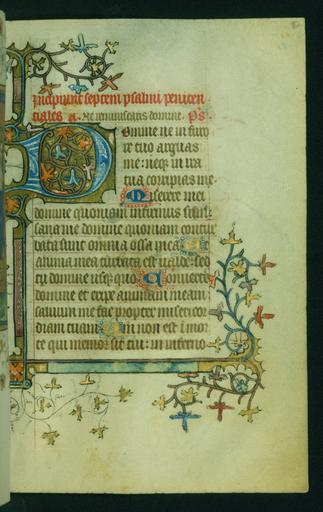 Incipiunt septem psalmi peniten
tiales a. Ne reminiscaris domine. ps.
Domine ne in furo
re tuo arguas
me: neqz in ira
tua corripias me.
Miserere mei
domine quoniam infirmus sum:
sana me domine quoniam contur
bata sunt omnia ossa mea
Et anima mea turbata est valde: sed
tu domine usqz quo Convertere
domine et eripe animam meam:
salvum me fac propter misericor
diam tuam Quoniam non est i mor
te qui memor sit tui: in inferno